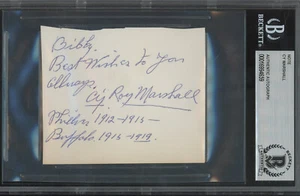 Bibby.
Best Wishes to You
Always.
Cy Roy Marshall
Phillies 1912-1915-
Buffalo. 1915-1919.
BECKETT
NOTE
CY MARSHALL
AUTHENTIC AUTOGRAPH
BECKETT